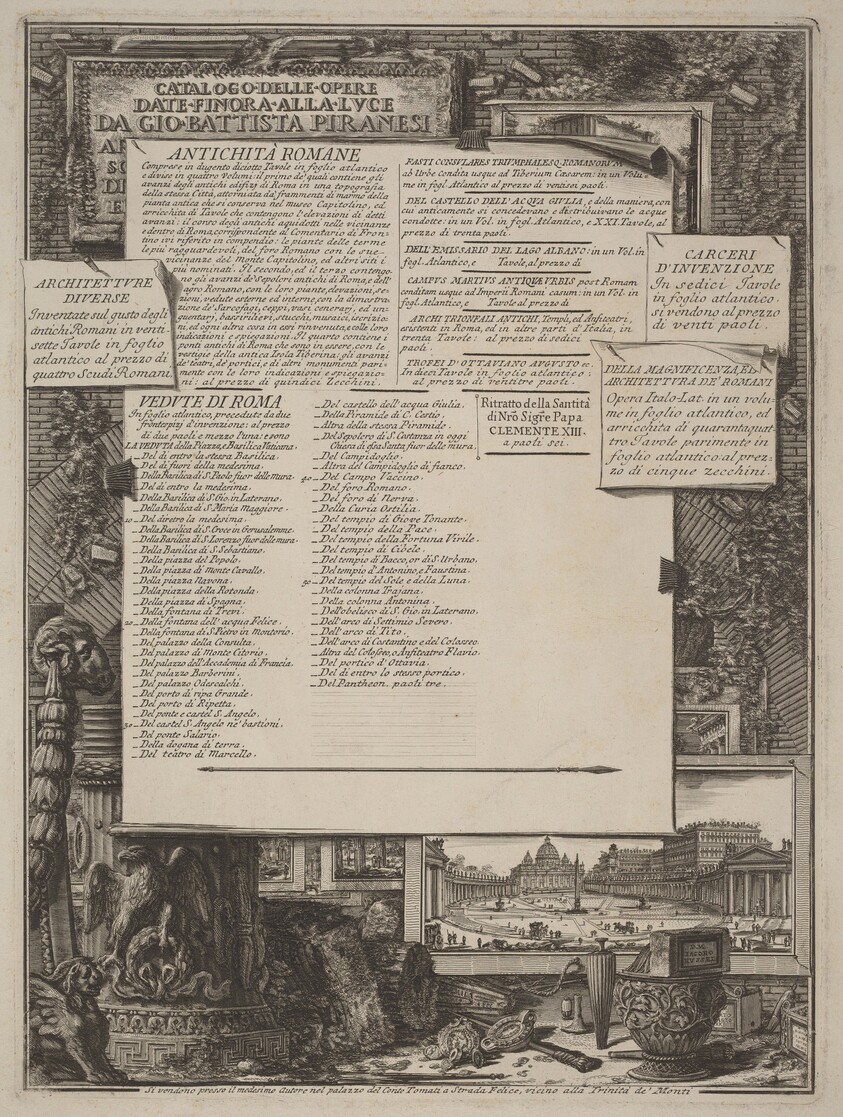 CATALOGO·DELLE·OPERE
DATE·FINORA·ALLA·LVCE
DA GIO·BATTISTA PIRANESI
ANTICHITÀ ROMANE
Comprese in dugento diciotto Tavole in foglio atlantico
e divise in quattro Volumi: il primo de' quali contiene gli
avanzi degli antichi edifizj di Roma in una topografia
della stessa Città, attorniata da' frammenti di marmo della
pianta antica che si conserva nel museo Capitolino, ed
arricchita di Tavole che contengono l'elevazioni di detti
avanzi: il corso degli antichi aquidotti nelle vicinanze
e dentro di Roma, corrispondente al Comentario di Fron-
tino ivi riferito in compendio: le piante delle terme
le più ragguardevoli, del foro Romano con le sue
vicinanze del Monte Capitolino, ed altri siti i
più nominati. Il secondo, ed il terzo contengo-
no gli avanzi de' Sepolcri antichi di Roma, e dell'
agro Romano, con le loro piante, elevazioni, Se-
zioni, vedute esterne ed interne, con la dimostra-
zione de' Sarcofagi, ceppi, vasi cenerarj, ed un-
guentarj, bassirilievi, stucchi, musaici, iscrizio-
ni, ed ogni altra cosa in essi rinvenuta, colle loro
indicazioni e spiegazioni. Il quarto contiene i
ponti antichi di Roma che sono in essere, con le
vestigie della antica Isola Tiberina: gli avanzi
de' teatri, de' portici, e di altri monumenti, pari-
mente con le loro indicazioni e spiegazio-
ni: al prezzo di quindici Zecchini.
FASTI CONSVLARES TRIVMPHALESQ. ROMANORVM
ab Urbe condita usque ad Tiberium Cæsarem: in un Volu-
me in fogl. Atlantico al prezzo di ventisei paoli.
DEL CASTELLO DELL' ACQUA GIULIA, e della maniera, con
cui anticamente si concedevano e distribuivano le acque
condotte: in un Vol. in fogl. Atlantico, e XXI. Tavole, al
prezzo di trenta paoli.
DELL' EMISSARIO DEL LAGO ALBANO: in un Vol. in
fogl. Atlantico, e Tavole, al prezzo di
CAMPVS MARTIVS ANTIQVÆ VRBIS post Romam
conditam usque ad Imperii Romani casum: in un Vol. in
fogl. Atlantico, e Tavole al prezzo di
ARCHI TRIONFALI ANTICHI, Templi, ed Anfiteatri,
esistenti in Roma, ed in altre parti d'Italia, in
trenta Tavole: al prezzo di sedici
paoli.
TROFEI D'OTTAVIANO AVGVSTO ec.
In dieci Tavole in foglio atlantico:
al prezzo di ventitre paoli.
ARCHITETTVRE
DIVERSE
Inventate sul gusto degli
antichi Romani in venti-
sette Tavole in foglio
atlantico al prezzo di
quattro Scudi Romani.
CARCERI
D'INVENZIONE
In sedici Tavole
in foglio atlantico.
si vendono al prezzo
di venti paoli.
DELLA MAGNIFICENZA, ED
ARCHITETTVRA DE' ROMANI
Opera Italo-Lat. in un volu-
me in foglio atlantico, ed
arricchita di quarantaquat-
tro Tavole parimente in
foglio atlantico: al prez-
zo di cinque zecchini.
VEDUTE DI ROMA
In foglio atlantico, precedute da due
frontespizj d'invenzione: al prezzo
di due paoli e mezzo l'una: e sono
LA VEDUTA della Piazza, e Basilica Vaticana.
Del di entro la stessa Basilica.
Del di fuori della medesima.
Della Basilica di S. Paolo fuor delle mura.
Del di entro la medesima.
Della Basilica di S. Gio. in Laterano.
Della Basilica di S. Maria Maggiore.
10 Del diretro la medesima.
Della Basilica di S. Croce in Gerusalemme.
Della Basilica di S. Lorenzo fuor delle mura.
Della Basilica di S. Sebastiano.
Della piazza del Popolo.
Della piazza di Monte Cavallo.
Della piazza Navona.
Della piazza della Rotonda.
Della piazza di Spagna.
Della fontana di Trevi.
20 Della fontana dell' acqua Felice.
Della fontana di S. Pietro in Montorio.
Del palazzo della Consulta.
Del palazzo di Monte Citorio.
Del palazzo dell' Accademia di Francia.
Del palazzo Barberini.
Del palazzo Odescalchi.
Del porto di ripa Grande.
Del porto di Ripetta.
Del ponte e castel S. Angelo.
30 Del castel S. Angelo ne' bastioni.
Del ponte Salario.
Della dogana di terra.
Del teatro di Marcello.
Del castello dell' acqua Giulia.
Della Piramide di C. Cestio.
Altra della stessa Piramide.
Del Sepolcro di S. Costanza in oggi
Chiesa di essa Santa fuor delle mura.
Del Campidoglio.
Altra del Campidoglio di fianco.
40 Del Campo Vaccino.
Del foro Romano.
Del foro di Nerva.
Della Curia Ostilia.
Del tempio di Giove Tonante.
Del tempio della Pace.
Del tempio della Fortuna Virile.
Del tempio di Cibele.
Del tempio di Bacco, or di S. Urbano.
Del tempio d'Antonino, e Faustina.
50 Del tempio del Sole e della Luna.
Della colonna Trajana.
Della colonna Antonina.
Dell'obelisco di S. Gio. in Laterano.
Dell' arco di Settimio Severo.
Dell' arco di Tito.
Dell' arco di Costantino e del Colosseo.
Altra del Colosseo, o Anfiteatro Flavio.
Del portico d'Ottavia.
Del di entro lo stesso portico.
Del Pantheon. paoli tre.
Ritratto della Santità
di Nrõ Sigre Papa
CLEMENTE XIII.
a paoli sei.
D. M.
Si vendono presso il medesimo Autore nel palazzo del Conte Tomati a Strada Felice, vicino alla Trinità de' Monti